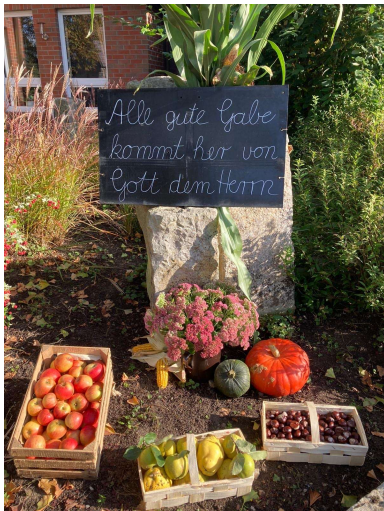 Alle gute Gabe
kommt her von
Gott dem Herrn